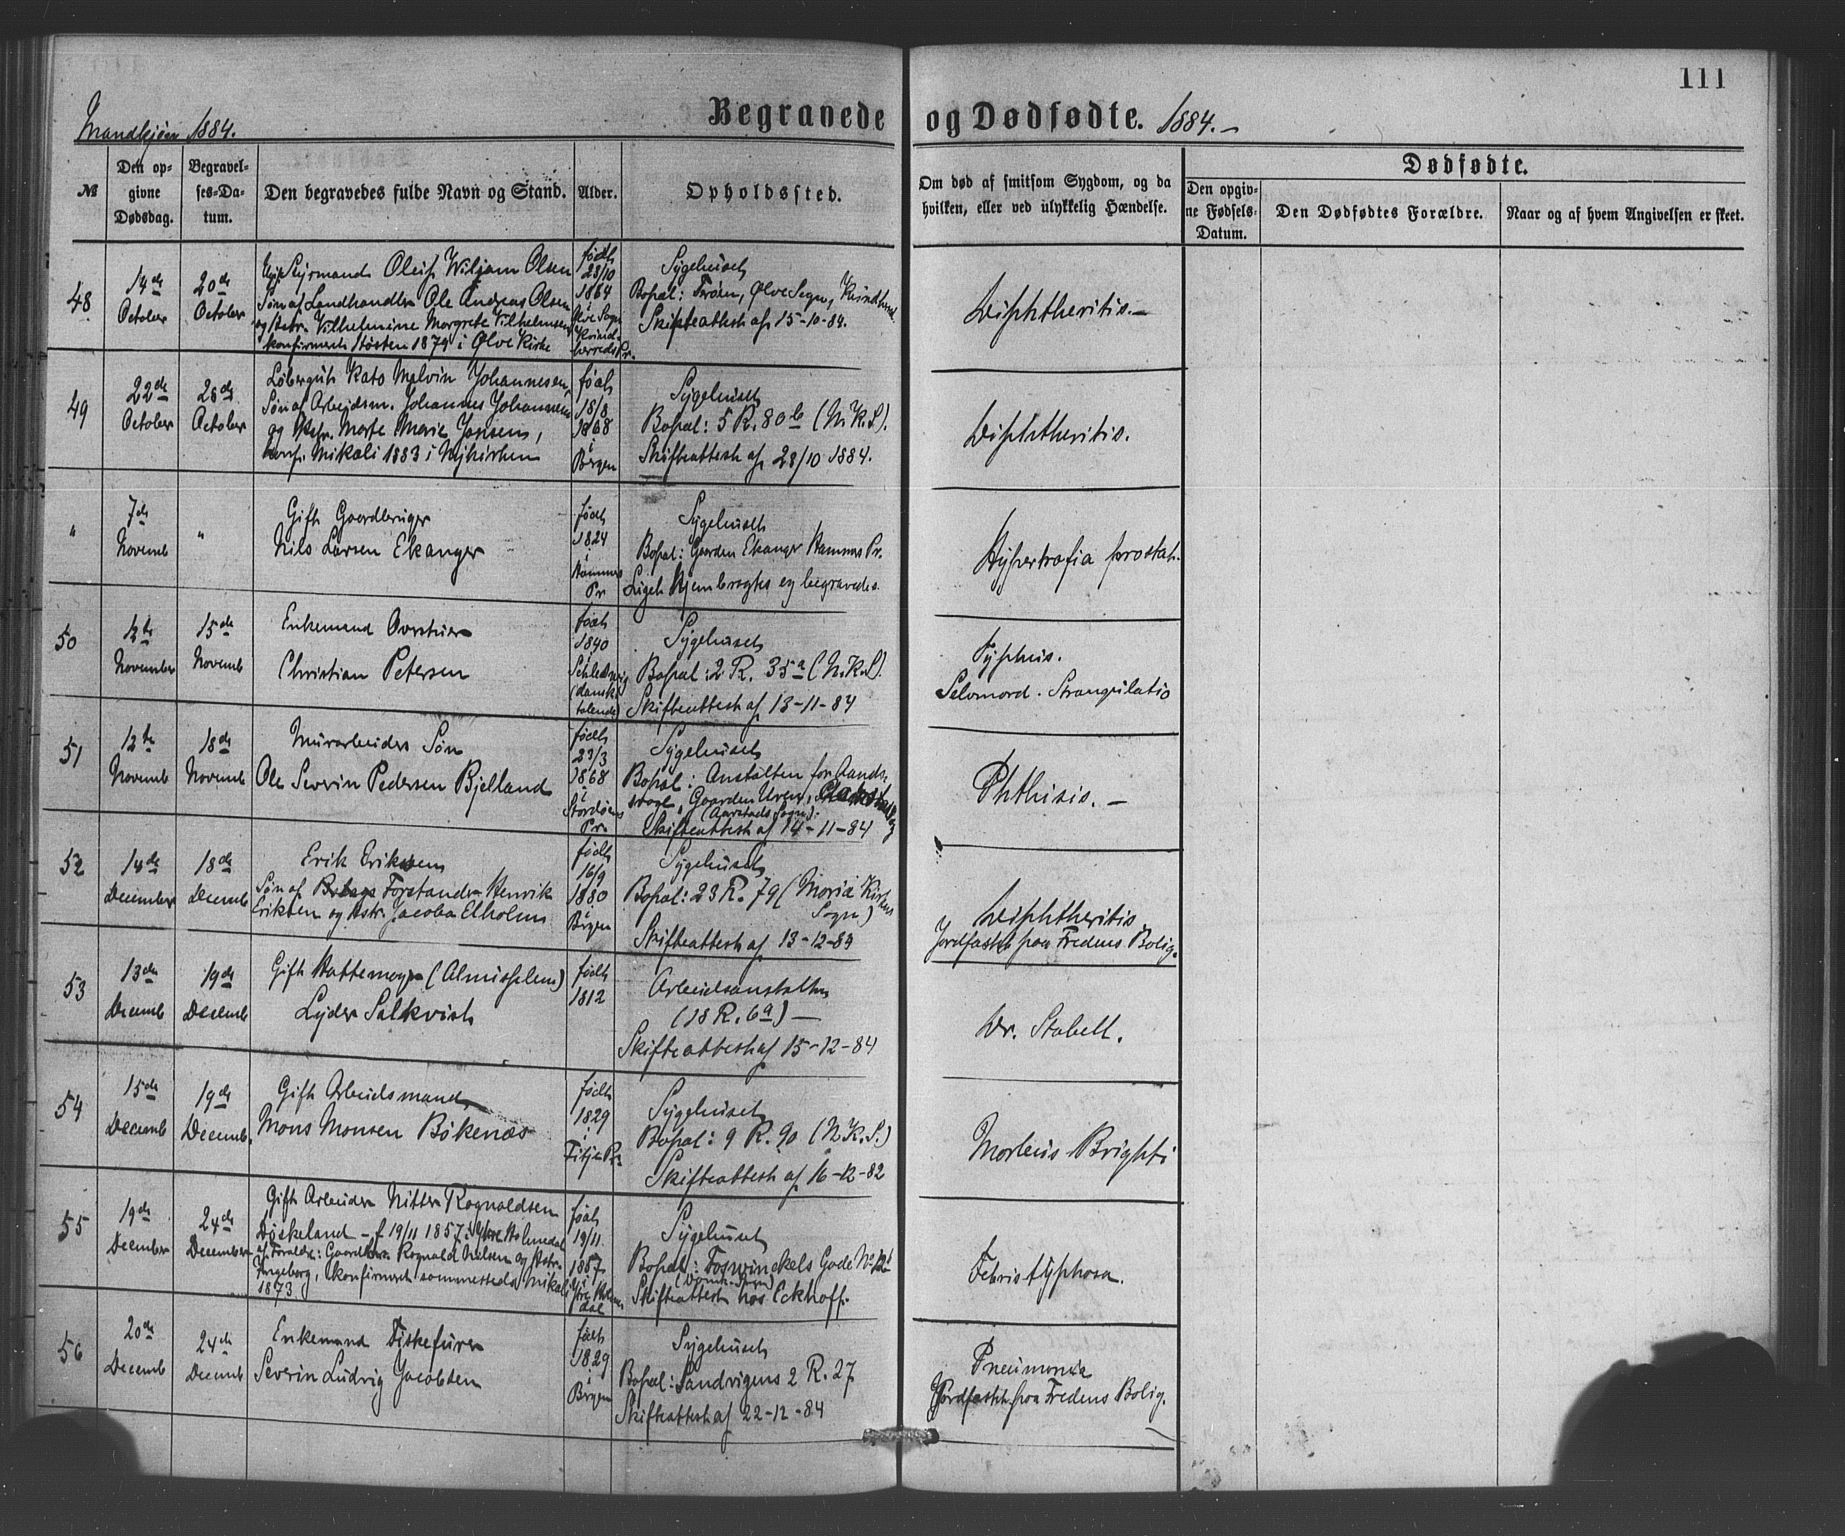 111
Mandkjøn 1884.
Begravede og Dødfødte. 1884.-
№
Den opgivne Dødsdag.
Begravelses-Datum.
Den begravedes fulde Navn og Stand.
Alder.
Opholdssted.
Om død af smitsom Sygdom, og da
hvilken, eller ved ulykkelig Hændelse.
Dødfødte.
Den opgivne Fødsels-Datum.
Den Dødfødtes Forældre.
Naar og af hvem Angivelsen er skeet.
48
14de October
20de October
Styrmand Oleif Wiljam Olsen
Søn af Landhandler Ole Andreas Olsen
og Hstr. Vilhelmine Margrete Vilhelmsen
konfirmeret Høsten 1879 i Ølve Kirke
født 28/10 1864 i Ølve Sogn Kvindherreds Pr.
Sygehuset
Bopæl: Ølve Sogn, Kvindherred
Skifteattest af 15-10-84.
Diphtheritis.-
49
22de October
28de October
Løbergut Kato Melvin Johannesen,
Søn af Arbejdsm. Johannes Johannesen
og Hstr. Marte Marie Jonsen,
konf. Mikali 1883 i Nykirken
født 18/8 1868 i Bergen
Sygehuset
Bopæl: 5 R. 80 b (N.K.S).
Skifteattest af 28/10 1884.
Diphtheritis.
"
7de Novemb
"
Gift Gaardbruger
Nils Larsen Ekanger
født 1824 i Hammers Pr
Sygehuset
Bopæl: Gaarden Ekanger Hammers Pr.
Liget Hjembragtes og begravedes.
Hypertrofia prostat.
50
12te November
15de Novemb
Enkemand
Christian Petersen
født 1840 Schleswig (dansktalende)
Sygehuset
Bopæl: 2 R. 35a (N.K.S).
Skifteattest af 13-11-84
Typhus.
Selvmord. Strangulatio
51
12te Novemb
18de Novemb
Murarbeiders Søn
Ole Severin Pedersen Bjelland
født 23/3 1868 i Stordøens Pr.
Sygehuset
Bopæl: Anstalten for Aandssvage, Gaarden
(Aarstads Sogn).
Skifteattest af 14-11-84
Phthisis.-
52
14de December
18de Decemb
Erik Eriksen
Søn af Forstander Henrik
Eriksen og Hstr. Jacoba Elholm
født 16/9 1880 i Bergen
Sygehuset
Bopæl: 23 R. 79 (Maria Kirkes Sogn)
Skifteattest af 13-12-84
Diphtheritis
Jordfæstet paa Fredens Bolig.
53
13de Decemb
19de Decemb
Gift Hattemager (Almisselem)
Lyder Salkvist
født 1812
Arbeidsanstalten
(18 R. 6a)-
Skifteattest af 15-12-84
Dr. Stabell.
54
15de Decemb
19de Decemb.
Gift Arbeidsmand,
Mons Monsen Bøkenæs
født 1829 i Fitje Pr.
Sygehuset
Bopæl: 9 R. 90 (N.K.S.)
Skifteattest af 16-12-82
Morbus Brighti
55
19de December
24de December
Gift Arbeider Nitter Rognaldsen
Døskeland - f 19/11 1857 i Ytre Holmedal
af Forældre: Gaardbr. Rognald Nilsen og Hstr.
Ingeborg, konfirmeret sammesteds Mikali
1873
født 19/11. 1857 i Ytre Holmedal
Sygehuset
Bopæl: Foswinckels Gade No 12
(Domk. Sogn)
Skifteattest hos Eckhoff.
Febris typhosa.
56
20de Decemb
24de Decemb
Enkemand Fiskefører
Severin Ludvig Jacobsen
født 1829 i Bergen
Sygehuset
Bopæl: Sandvigens 2 R. 27
Skifteattest af 22-12-84
Pneumonia
Jordfæstet paa Fredens Bolig.